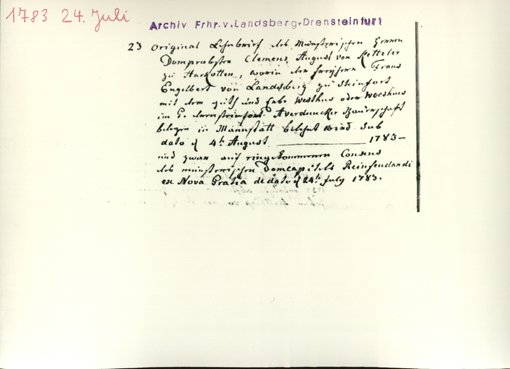 1783 24. Juli
Archiv Frhr. v. Landsberg-Drensteinfurt
23 Original Lehnbrief des Münsterischen Herren
Domprobsten Clemens August von Ketteler
zu Harkotten, worin der freyherr Franz
Engelbert von Landsberg zu Steinfort
mit dem guth und Erbe Westhus oder Woesthus
im G. Averduncker Baurschaft
belegen in belehnt wird sub
dato d 4t August 1783 –
und zwar auf eingekommenen Consens
des münsterischen Domcapitels
ex Nova Gratia de dato d 24t July 1783.